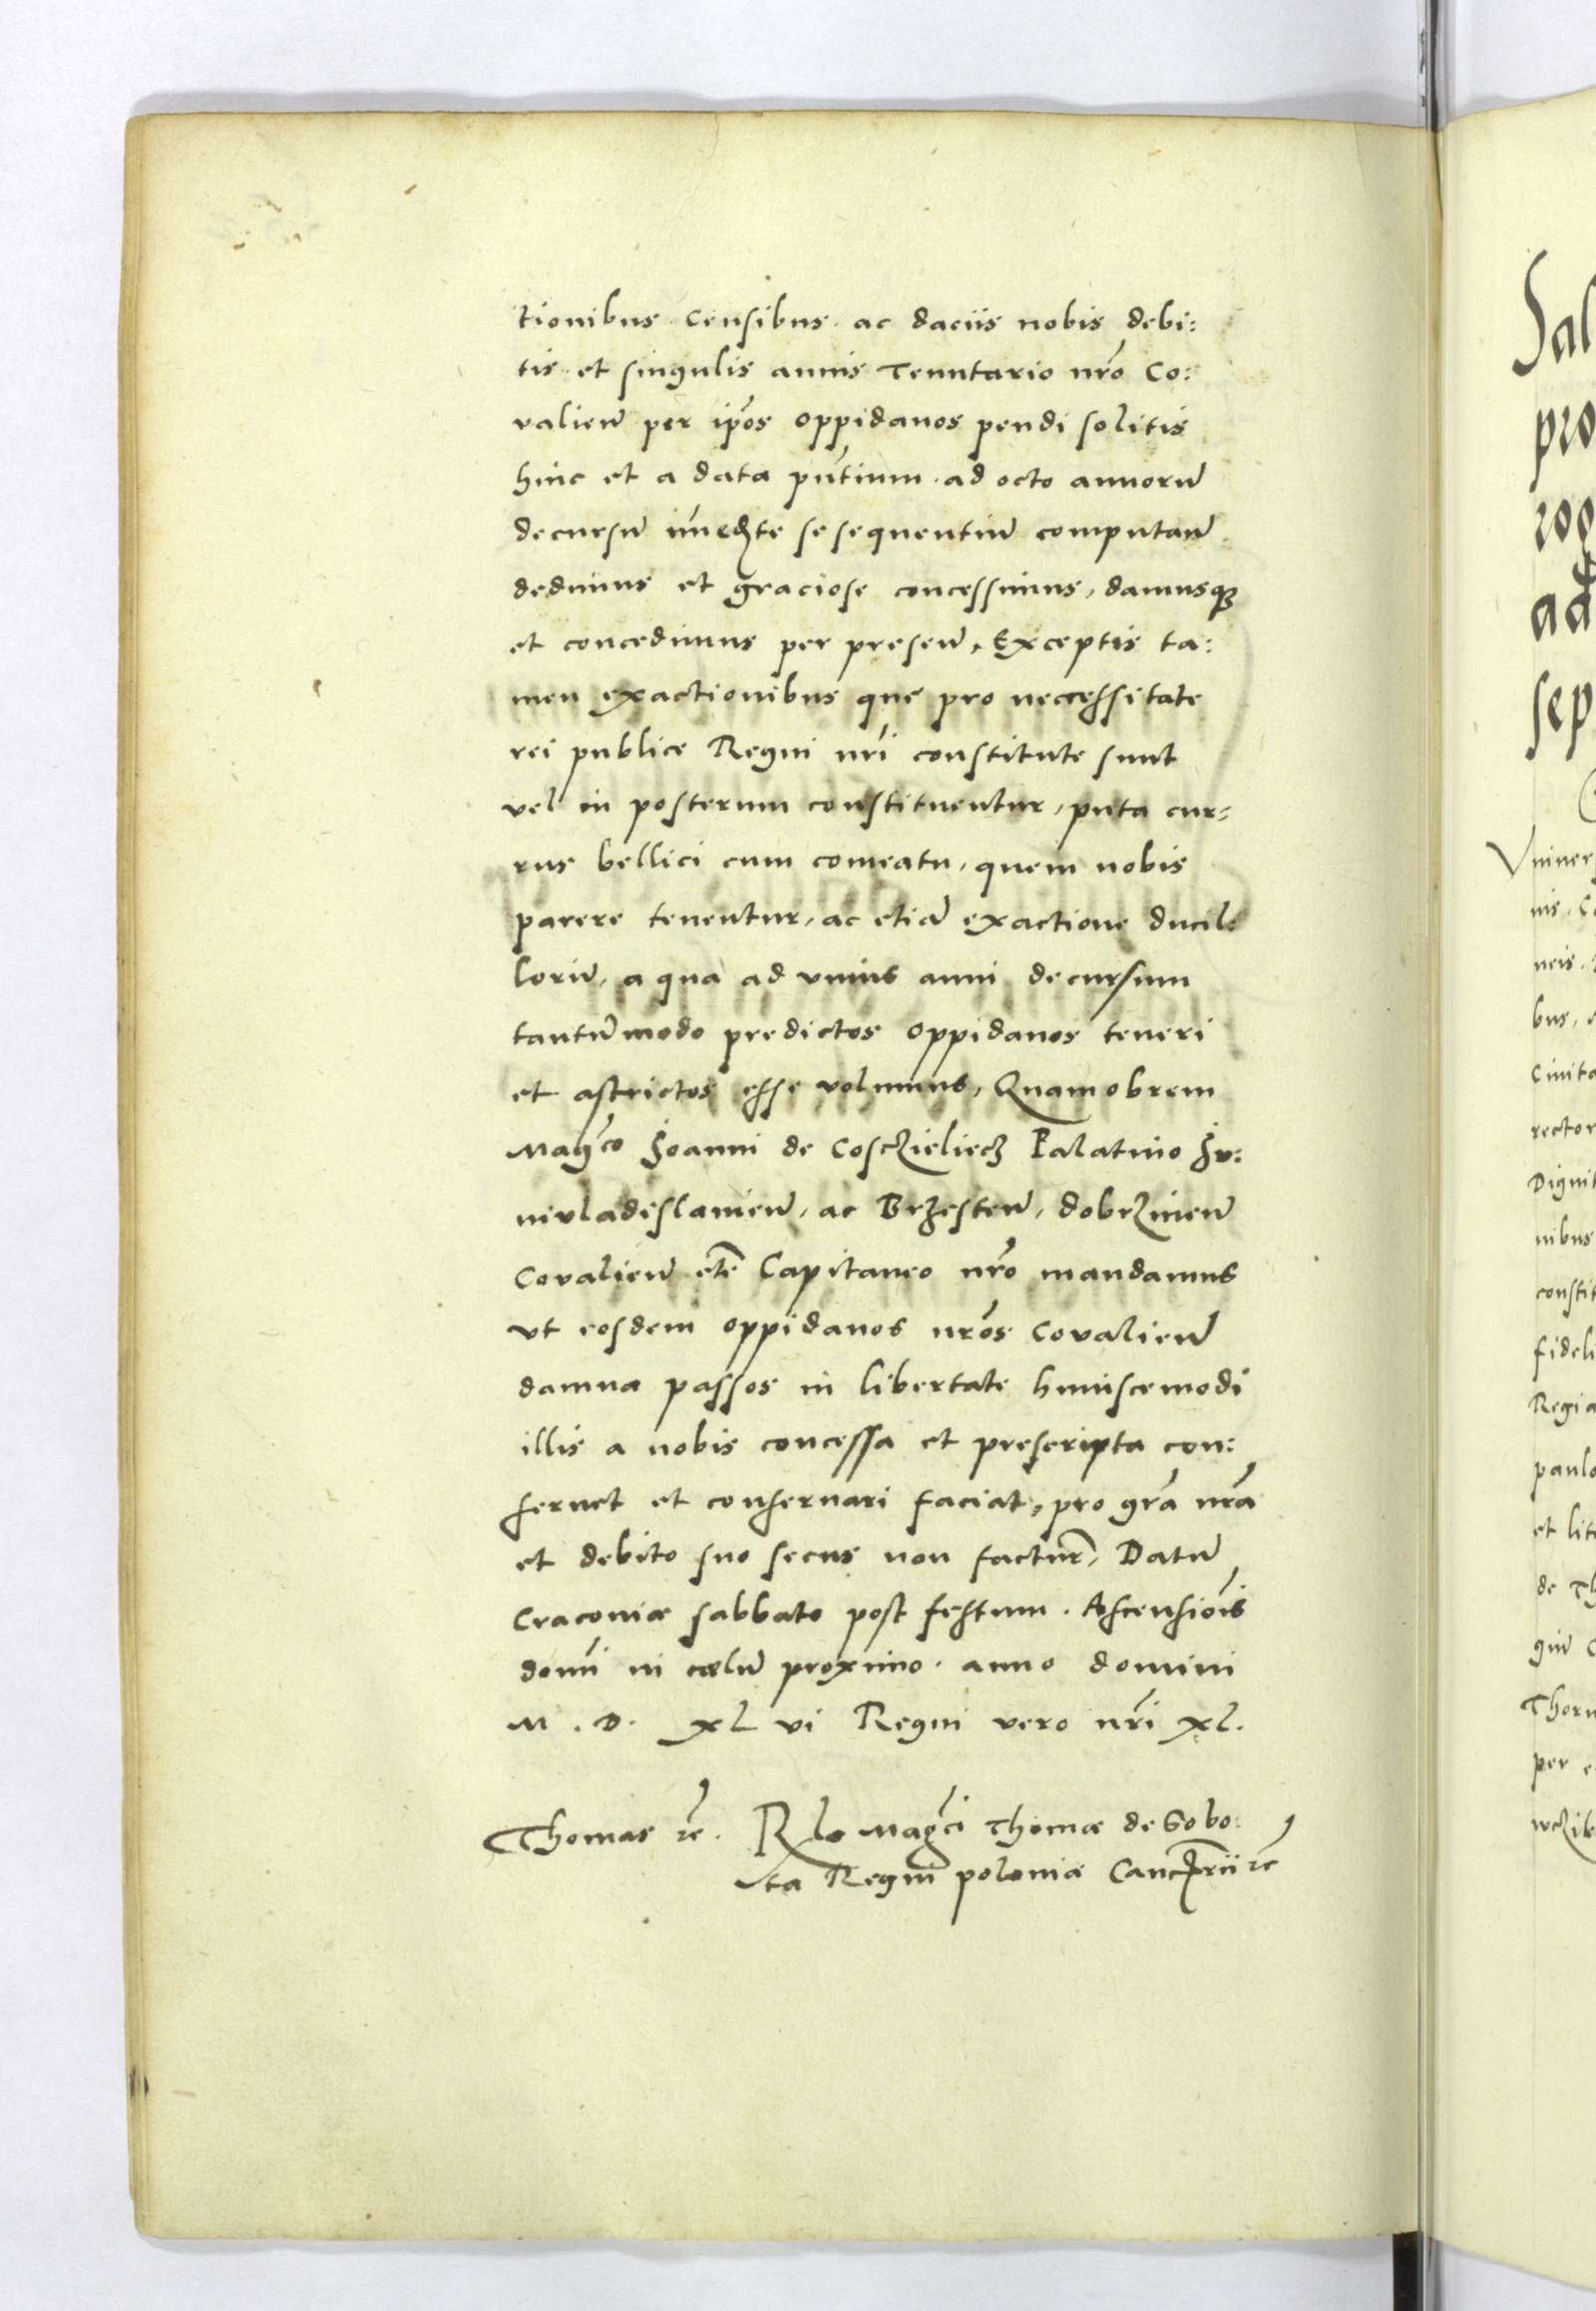 tionibus censibus ac daciis nobis debi:
tis et singulis annis Tenutario nr̃o Co:
valieñ per ip̃os oppidanos pendi solitis
hinc et a data pñtium ad octo annorũ
decursũ im̃edte se sequentiũ computañ
dedimus et graciose concessimus, damusqꝫ
et concedimus per preseñ, Exceptis ta:
men exactionibus que pro neccessitate
rei publice Regni nr̃i constitute sunt
vel in posterum constituentur, puta cur:
rus bellici cum comeatu, quem nobis
parere tenentur, ac etiã exactione ducil:
lorũ, a qua ad unius anni decursum
tantũmodo predictos oppidanos teneri
et astrictos esse volumus, Quamobrem
Mag͂co Joanni de Cosczieliecz Palatino Ju:
niuladislauieñ, ac Brzesteñ, dobrzinieñ
Covalieñ etc̃ Capitaneo nr̃o mandamus
ut eosdem oppidanos nr̃os Covalieñ
damna passos in libertate huiuscemodi
illis a nobis concessa et prescripta con:
seruet et conseruari faciat, pro gr̃a nr̃a
et debito suo secus non factur̃, Datũ
Cracoviæ sabbato post festum Ascensiõis
domĩ in cælũ proximo anno domini
M . D . XL vi Regni vero nr̃i xl.
Thomas ꝛc̃. Rlo Mag͂ci Thomæ de Sobo:
ta Regni poloniæ Cancellr̃ii ꝛc̃
Sal
pro
rog
ad
sep
Vniuer
nis, Co
neis,
bus,
Ciuita
rector
Dignit
nibus
constit
fideli
Regia
paulo
et lite
de Th
quũ c
Thoru
per e